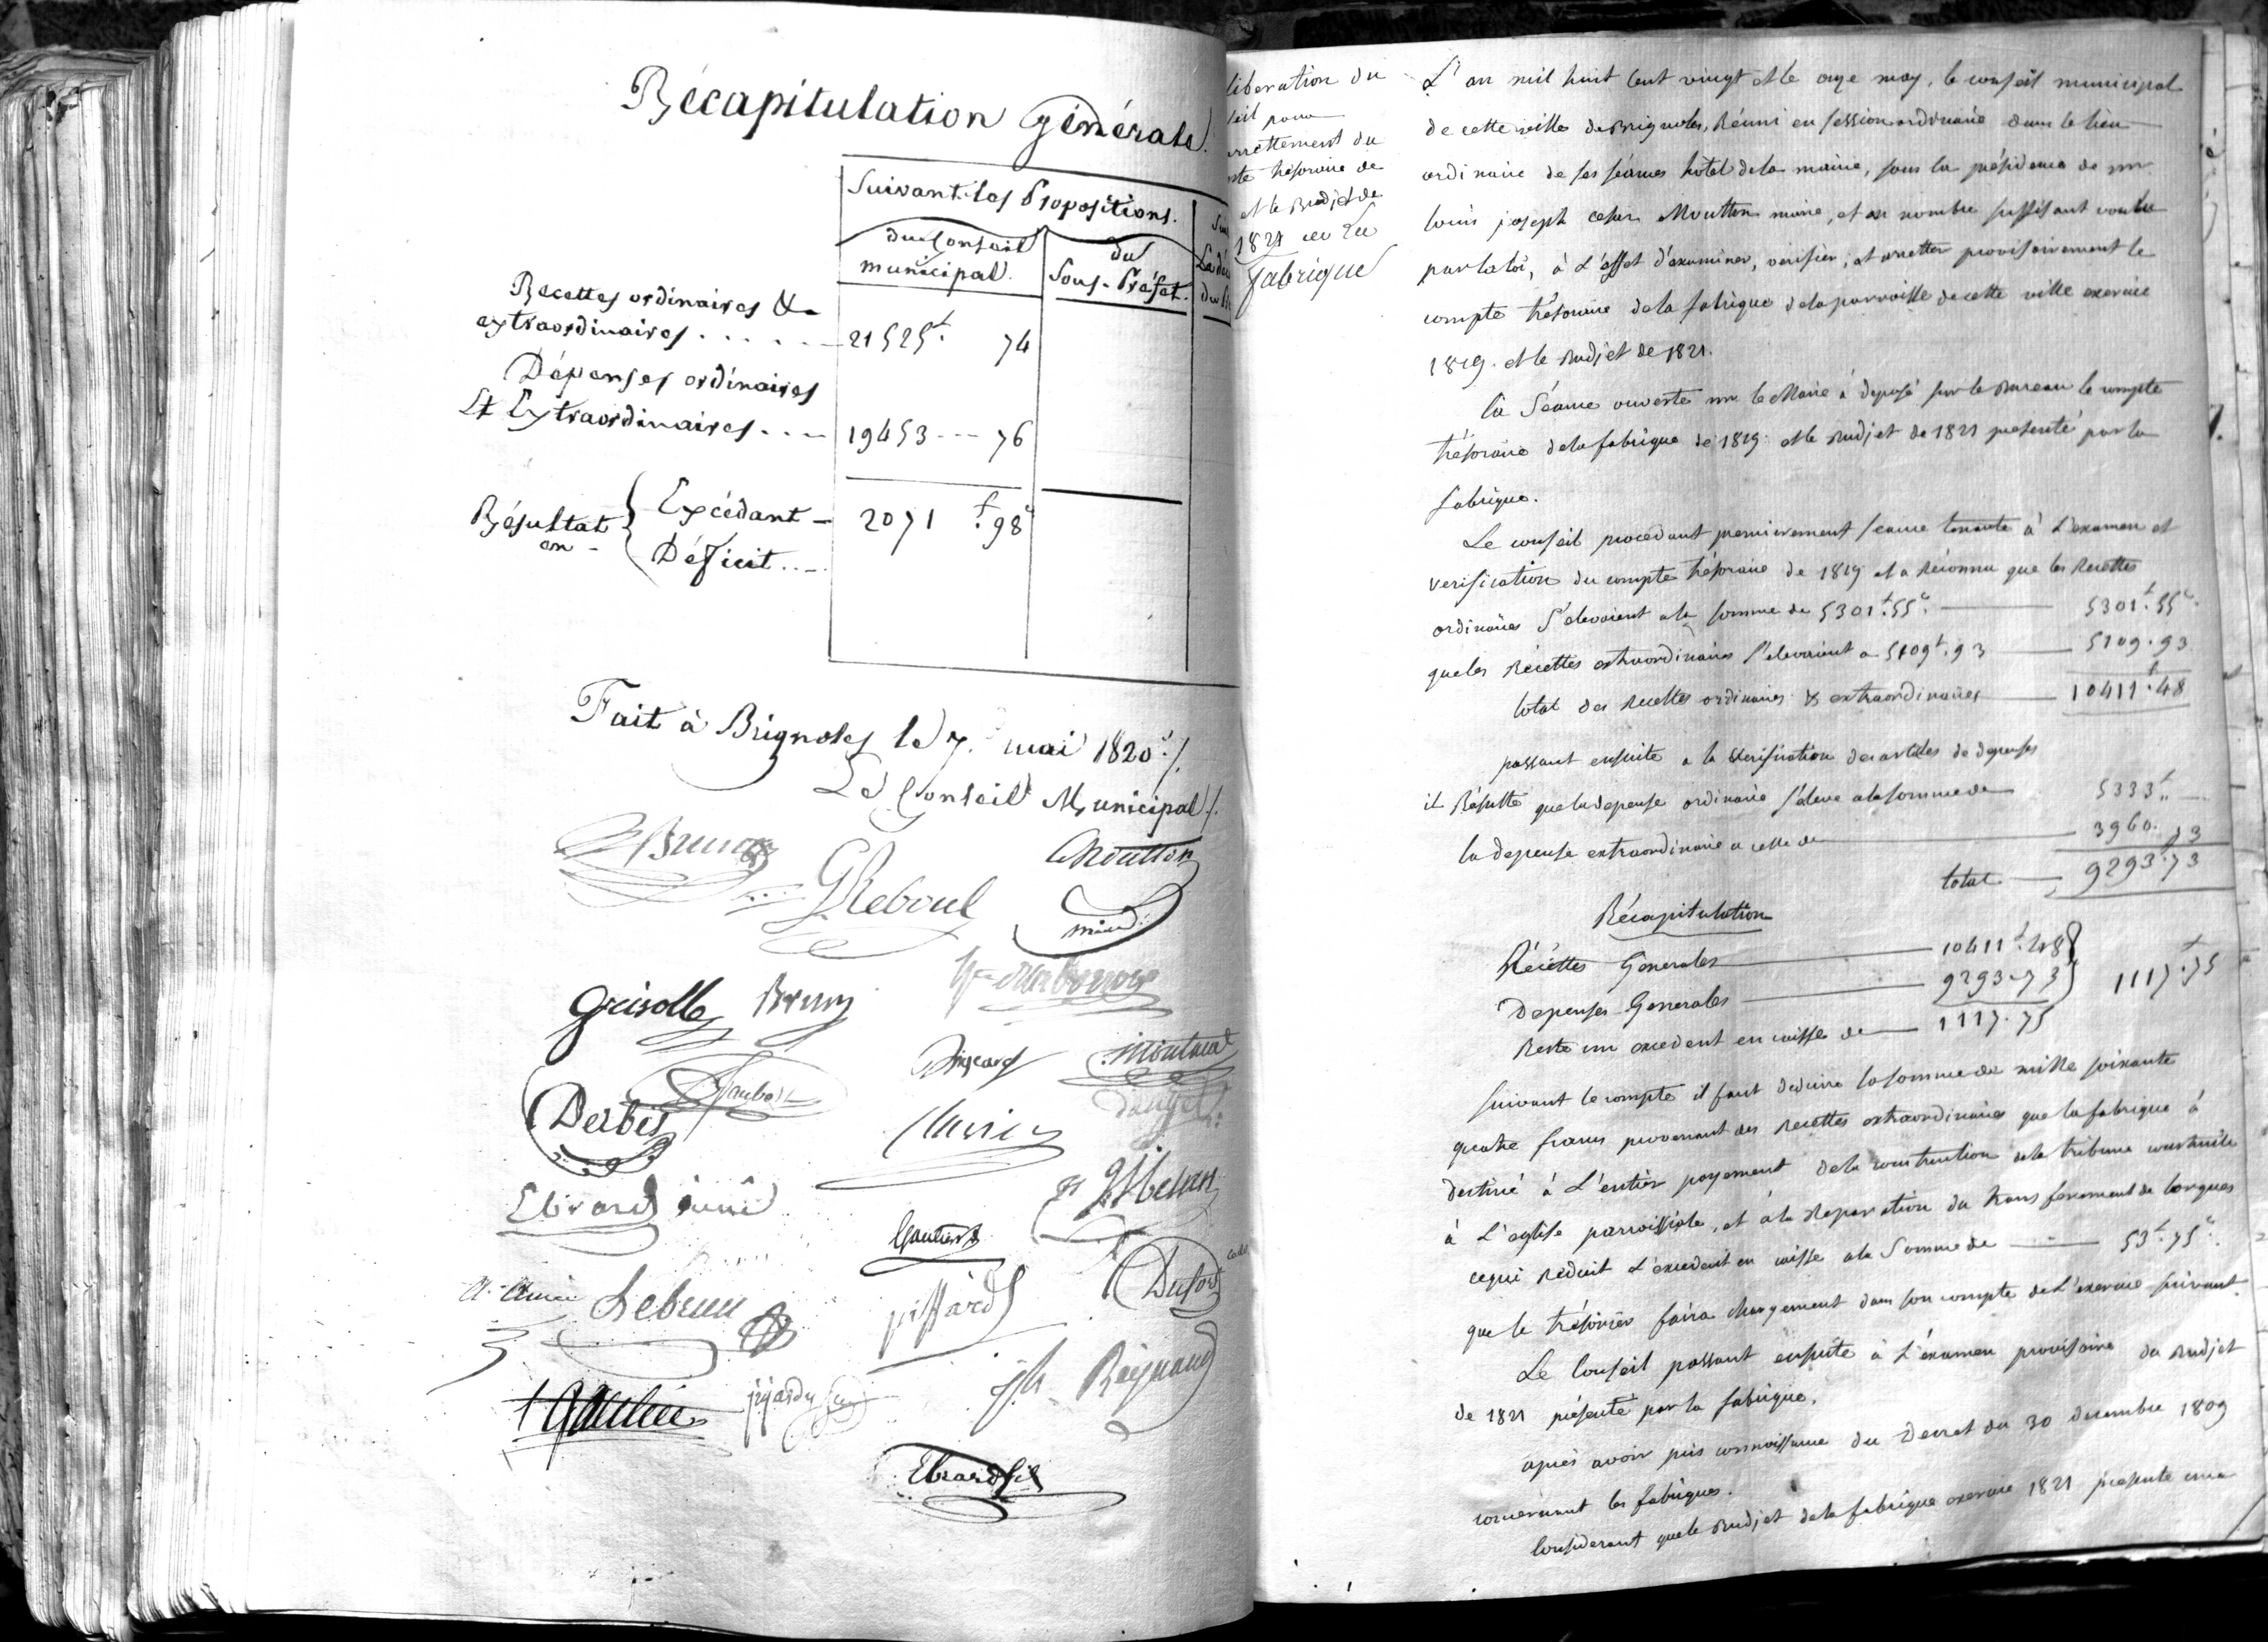 Récapitulation générale.
Suivant les Propositions.
du Conseil
municipal.
du
Sous-Préfet.
Recettes ordinaires &
extraordinaires . . . . . 21525f. 74
Dépenses ordinaires
Et Extraordinaires . . . 19453 --- 76
Résultat en { Excédant — 2071f. 98c
Déficit . . .
Fait à Brignoles le 7. mai 1820 ./.
Le Conseil Municipal ./.
Brunon
GReboul
Moutton
maire
Grisolle Brun
Jaubert
Derbès
Clavier
Ebrard
Gautier
A. Lebrun
piffard
Dufort
Reynaud
Ebrard fils
libération du
seil pour
arrettement du
pte trésoraire de
et le Budjet de
1821 de la
fabrique
L'an mil huit cent vingt et le onze may, le conseil municipal
de cette ville de Brignoles, Réuni en session ordinaire dans le lieu
ordinaire de ses séances hôtel de la mairie, sous la présidence de mr
louis joseph cesar Moutton maire, et en nombre suffisant voulu
par la loi, à L'effet d'examiner, verifier, et arretter provisoirement le
compte trésoraire de la fabrique de la parroisse de cette ville exercice
1819. et le Budjet de 1821.
la Séance ouverte mr le Maire à déposé sur le Bureau le compte
trésoraire de la fabrique de 1819. et le Budjet de 1821 présenté par la
fabrique.
Le conseil procédant premierement séance tenante à L'examen et
verification du compte trésoraire de 1819 et a Réconnu que les Recettes
ordinaires S'élevaient a la somme de 5301f.55c. — 5301f.55c.
que les Récettes extraordinaires s'elevaient a 5109f.93 — 5109.93
total des Recettes ordinaires & extraordinaires — 10411f.48
passant ensuite a la Verification des articles de depenses
il Résulte que la depense ordinaire s'éleve a la somme de 5333f. „
la depense extraordinaire a celle de — 3960. 73
total — 9293.73
Récapitulation
Récettes Generales — 10411f.48
Depenses Generales — 9293.73 } 1117f.75
Reste un excedent en caisse de — 1117.75
suivant le compte il faut deduire la somme de mille soixante
quatre francs provenant des Recettes extraordinaires que la fabrique à
destiné à L'entier payement de la construction de la tribune construite
à L'eglise parroissiale, et à la Reparation du transferement de l'orgues
ce qui Réduit L'excedent en caisse a la Somme de — 53f.75c.
que le trésorier faira chargement dans son compte de L'exercice suivant.
Le Conseil passant ensuite à L'examen provisoire du Budjet
de 1821 présenté par la fabrique,
après avoir pris connoissance du Decret du 30 decembre 1809
concernant les fabriques.
Considerant que le Budjet de la fabrique exercice 1821 présente une